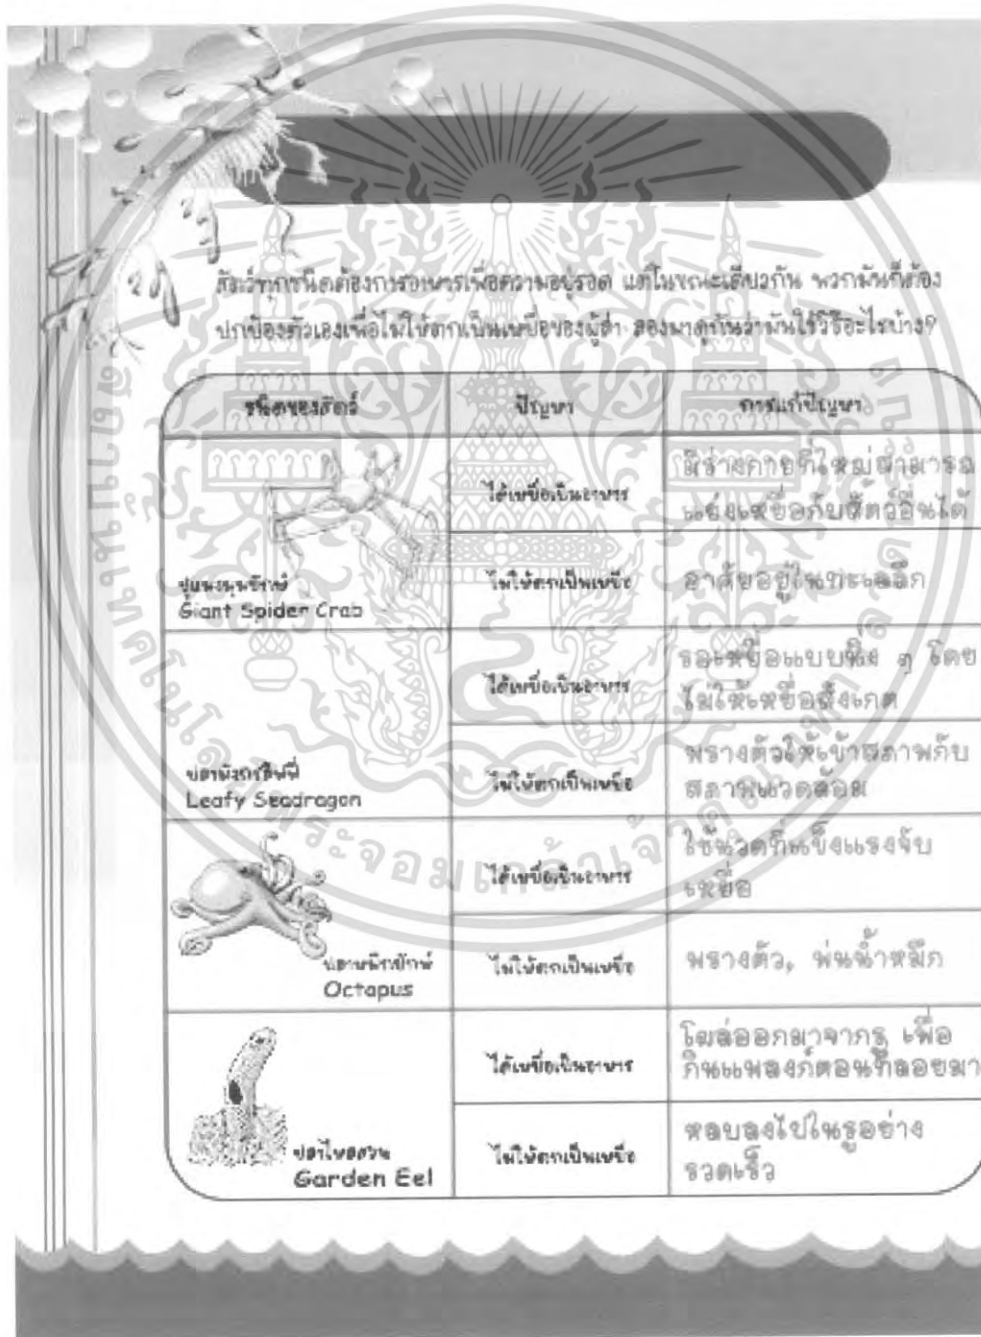 สัตว์ทุกชนิดต้องการอาหารเพื่อความอยู่รอด แต่ในขณะเดียวกัน พวกมันก็ต้อง
ปกป้องตัวเองเพื่อไม่ให้ตกเป็นเหยื่อของผู้ล่า ลองมาดูกันว่ามันใช้วิธีอะไรบ้าง?
ชนิดของสัตว์ ปัญหา การแก้ปัญหา
ปูแมงมุมยักษ์
Giant Spider Crab
ได้เหยื่อเป็นอาหาร
มีร่างกายที่ใหญ่สามารถ
แย่งเหยื่อกับสัตว์อื่นได้
ไม่ให้ตกเป็นเหยื่อ
อาศัยอยู่ในทะเลลึก
ปลามังกรลีฟฟี่
Leafy Seadragon
ได้เหยื่อเป็นอาหาร
รอเหยื่อแบบนิ่ง ๆ โดย
ไม่ให้เหยื่อสังเกต
ไม่ให้ตกเป็นเหยื่อ
พรางตัวให้เข้าสภาพกับ
สภาพแวดล้อม
ปลาหมึกยักษ์
Octopus
ได้เหยื่อเป็นอาหาร
ใช้หนวดที่แข็งแรงจับ
เหยื่อ
ไม่ให้ตกเป็นเหยื่อ
พรางตัว, พ่นน้ำหมึก
ปลาไหลสวน
Garden Eel
ได้เหยื่อเป็นอาหาร
โผล่ออกมาจากรู เพื่อ
กินแพลงก์ตอนที่ลอยมา
ไม่ให้ตกเป็นเหยื่อ
หลบลงไปในรูอย่าง
รวดเร็ว
สถาบันเทคโนโลยีพระจอมเกล้าเจ้าคุณทหารลาดกระบัง